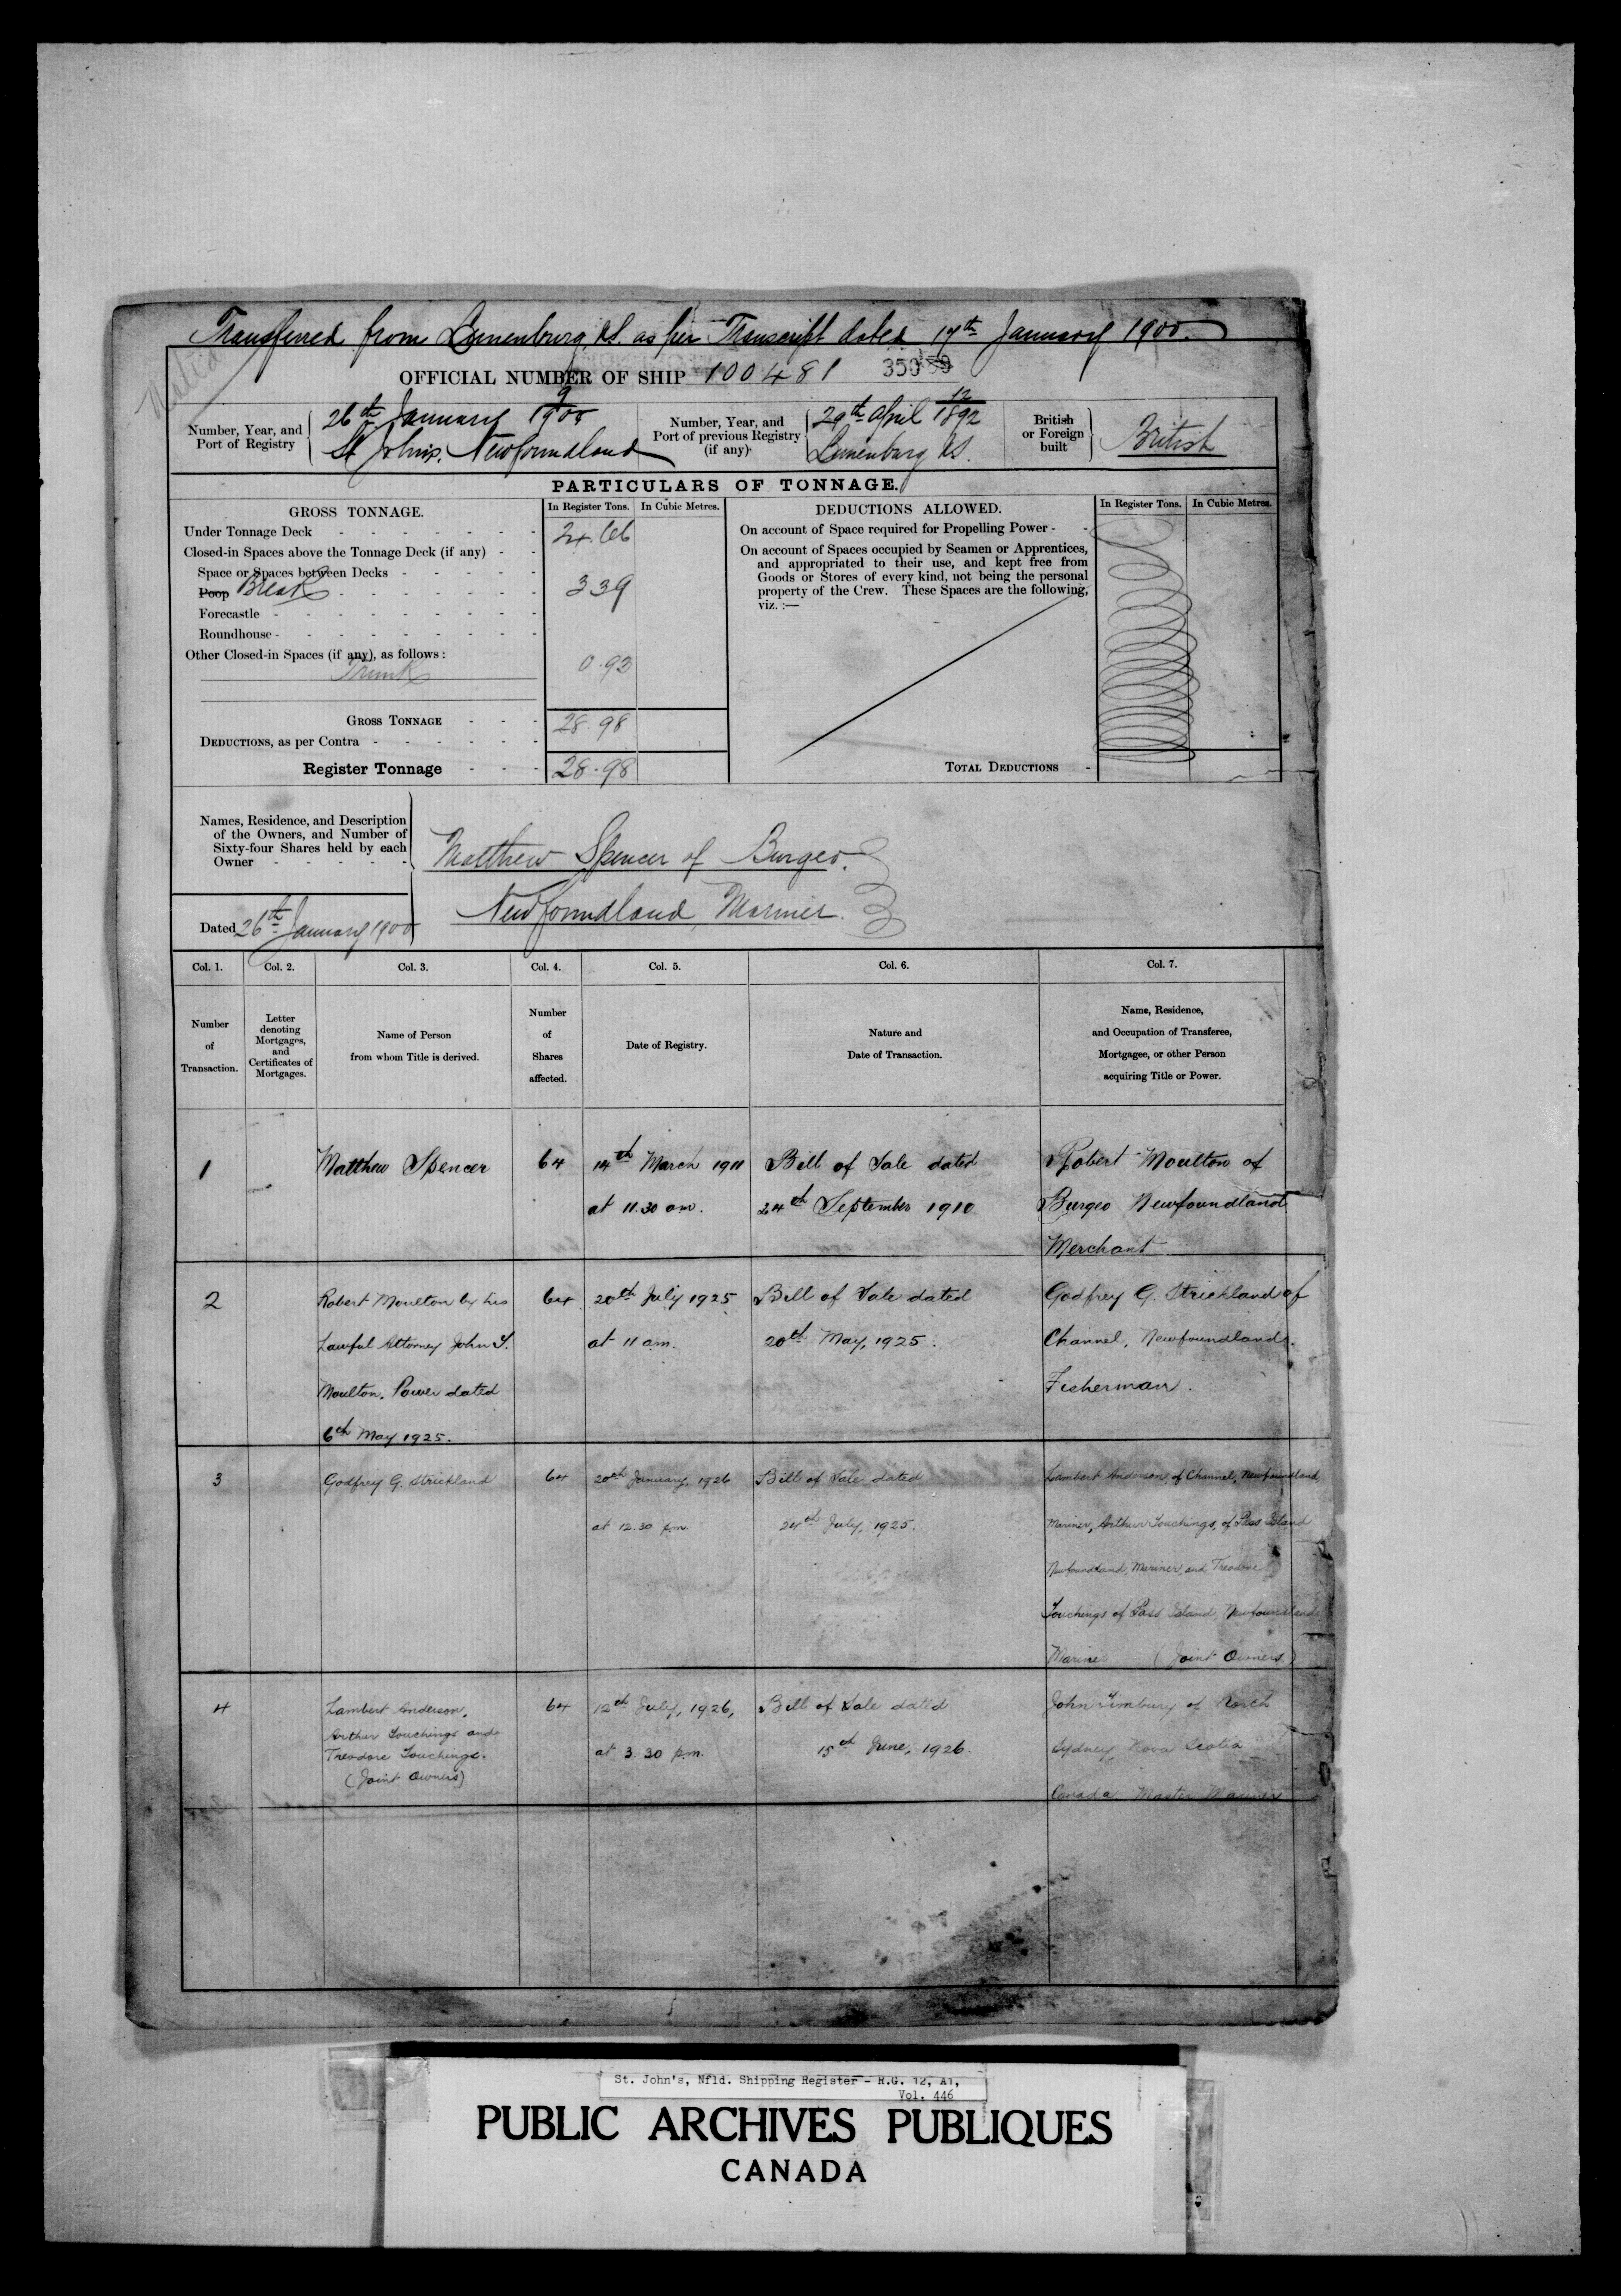 Transferred from Lunenburg, N.S. as per Transcript dated 17th January 1900.
OFFICIAL NUMBER OF SHIP 100481 350
Number, Year, and Port of Registry
9
26th January 1900
St John's, Newfoundland
Number, Year, and Port of previous Registry (if any)
12
29th April 1892
Lunenburg N.S.
British or Foreign built
British
PARTICULARS OF TONNAGE.
GROSS TONNAGE. In Register Tons. In Cubic Metres.
Under Tonnage Deck 24.66
Closed-in Spaces above the Tonnage Deck (if any)
Space or Spaces between Decks
Poop Break 3 39
Forecastle
Roundhouse
Other Closed-in Spaces (if any), as follows:
Trunk 0.93
GROSS TONNAGE 28.98
DEDUCTIONS, as per Contra
Register Tonnage 28.98
DEDUCTIONS ALLOWED. In Register Tons. In Cubic Metres.
On account of Space required for Propelling Power
On account of Spaces occupied by Seamen or Apprentices,
and appropriated to their use, and kept free from
Goods or Stores of every kind, not being the personal
property of the Crew. These Spaces are the following,
viz.:—
TOTAL DEDUCTIONS
Names, Residence, and Description
of the Owners, and Number of
Sixty-four Shares held by each
Owner
Matthew Spencer of Burgeo.
Newfoundland, Mariner.
Dated 26th January 1900
Col. 1. Col. 2. Col. 3. Col. 4. Col. 5. Col. 6. Col. 7.
Number of Transaction.
Letter denoting Mortgages, and Certificates of Mortgages.
Name of Person from whom Title is derived.
Number of Shares affected.
Date of Registry.
Nature and Date of Transaction.
Name, Residence, and Occupation of Transferee, Mortgagee, or other Person acquiring Title or Power.
1 Matthew Spencer 64 14th March 1911 Bill of Sale dated Robert Moulton of
at 11.30 am. 24th September 1910 Burgeo Newfoundland
Merchant
2 Robert Moulton by his 64 20th July 1925 Bill of Sale dated Godfrey G. Strickland of
Lawful Attorney John T. at 11 am. 20th May, 1925. Channel, Newfoundland.
Moulton, Power dated Fisherman.
6th May 1925.
3 Godfrey G. Strickland 64 20th January, 1926 Bill of Sale dated Lambert Anderson of Channel, Newfoundland
at 12.30 p.m. 24th July, 1925. Mariner, Arthur Touchings, of Pass Island
Newfoundland, Mariner, and Treadore
Touchings of Pass Island, Newfoundland
Mariner (Joint Owners)
4 Lambert Anderson, 64 12th July, 1926, Bill of Sale dated John Timbury of North
Arthur Touchings and
Treodore Touchings. at 3.30 p.m. 15th June, 1926. Sydney, Nova Scotia
(Joint Owners)
Canada. Master Mariner
St. John's, Nfld. Shipping Register - R.G. 12, A1,
Vol. 446
PUBLIC ARCHIVES PUBLIQUES
CANADA